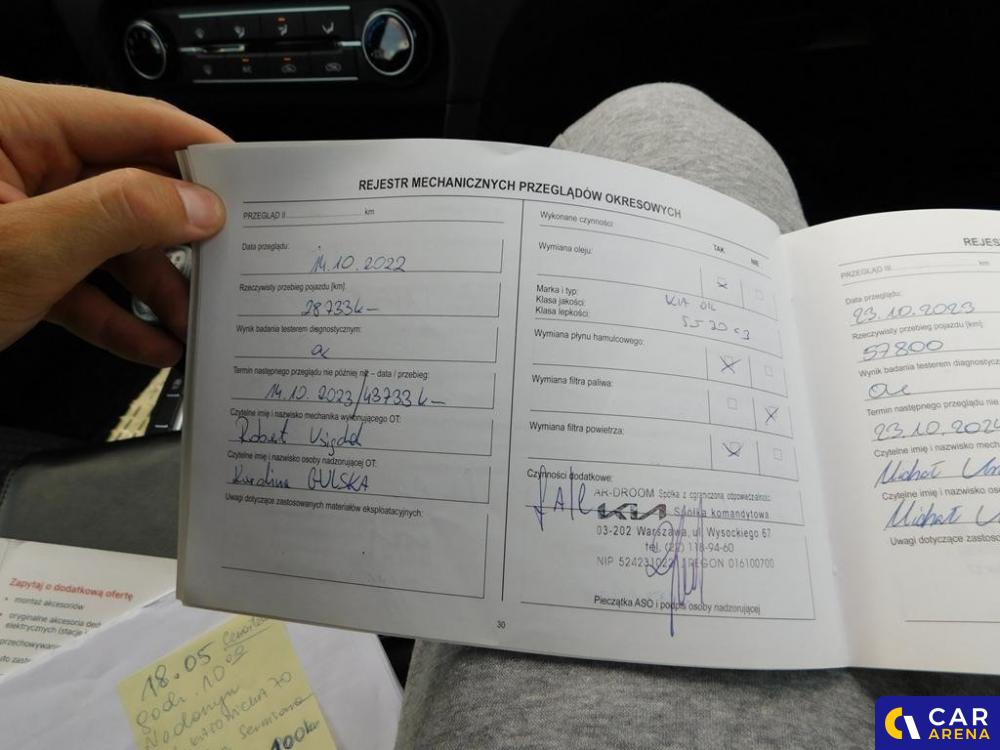 REJESTR MECHANICZNYCH PRZEGLĄDÓW OKRESOWYCH
PRZEGLĄD II ........................ km
Data przeglądu:
14.10.2022
Rzeczywisty przebieg pojazdu [km]:
28733k-
Wynik badania testerem diagnostycznym:
Termin następnego przeglądu nie później niż – data / przebieg:
14.10.2023/43733k-
Czytelne imię i nazwisko mechanika wykonującego OT:
Robert
Czytelne imię i nazwisko osoby nadzorującej OT:
Karolina GULSKA
Uwagi dotyczące zastosowanych materiałów eksploatacyjnych:
Wykonane czynności:
TAK NIE
Wymiana oleju:
Marka i typ: KIA OIL
Klasa jakości:
Klasa lepkości:
Wymiana płynu hamulcowego:
Wymiana filtra paliwa:
Wymiana filtra powietrza:
Czynności dodatkowe:
AR-DROOM Spółka z ograniczoną odpowiedzialnością
KIA Spółka komandytowa
03-202 Warszawa, ul. Wysockiego 67
tel. (22) 118-94-60
REGON 016100700
Pieczątka ASO i podpis osoby nadzorującej
30
REJES
PRZEGLĄD III ........................ km
Data przeglądu:
23.10.2023
Rzeczywisty przebieg pojazdu [km]:
57800
Wynik badania testerem diagnostyczn
Termin następnego przeglądu nie
23.10.2024
Czytelne imię i nazwisko mech
Michał
Czytelne imię i nazwisko os
Michał
Uwagi dotyczące zastoso
Zapytaj o dodatkową ofertę
• montaż akcesoriów
• oryginalne akcesoria
elektrycznych (stacje
18.05
godz. 10 00
Nadarzyn
100km
CAR
ARENA